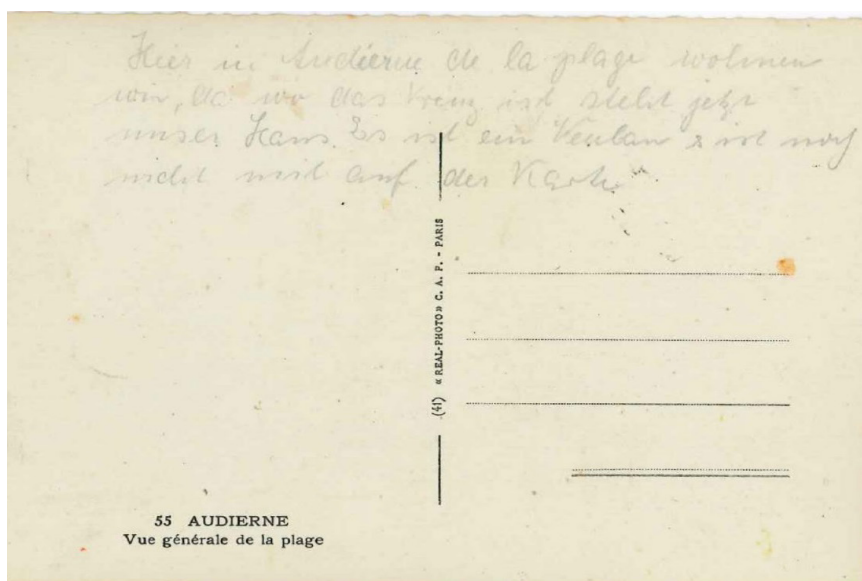 Hier in Audierne de la plage wohnen
wir, da wo das Kreuz ist steht jetzt
unser Haus. Es ist ein Neubau & ist noch
nicht mit auf der Karte
(41) « REAL-PHOTO » C. A. P. - PARIS
55 AUDIERNE
Vue générale de la plage